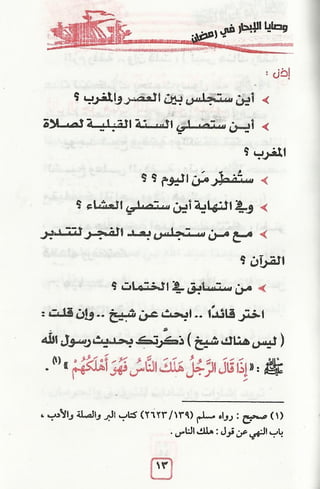 وصايا الإبحار في رمضان
إذن :
أين ستجلس بين العصر والمغرب ؟
أيـن ستصلـي السـنة القبليـة لصـلاة
المغرب ؟
ستُفطِّر مَن اليوم ؟ ؟
وفي النهاية أين ستصلي العشاء ؟
مـع مـن ستجلس بعـد الفجـر لتتـدبر
القرآن ؟
من ستسابق في الختمات ؟
اختر قائدًا .. ابحث عن شيخ .. وإن قلت :
( ليس هناك شيخ ) ذكَّرتك بحديث رسول الله
ﷺ : « إِذَا قَالَ الرَّجُلُ هَلَكَ النَّاسُ فَهُوَ أَهْلَكُهُمْ » (١) .
(١) صحيح : رواه مسلم (٢٦٢٣/١٣٩) كتاب البر والصلة والأدب ،
باب النهي عن قول : هلك الناس .
١٣